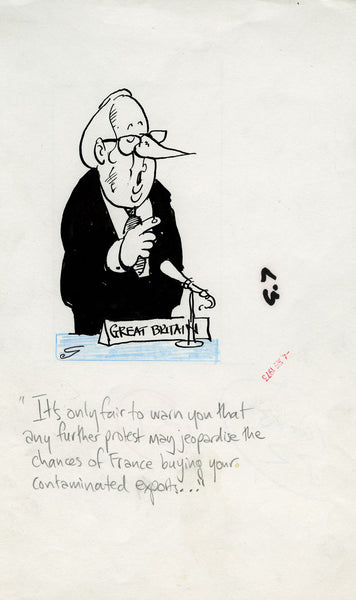 GREAT BRITAIN
"It's only fair to warn you that
any further protest may jeopardise the
chances of France buying your
contaminated exports..."